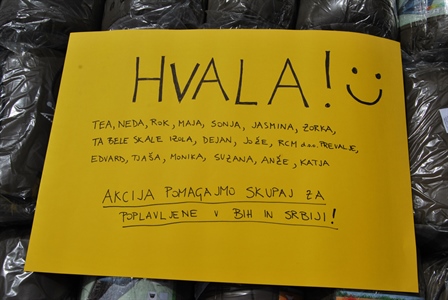 HVALA! :)
TEA, NEDA, ROK, MAJA, SONJA, JASMINA, ZORKA,
TA BELE SKALE IZOLA, DEJAN, JOŽE, RCM d.o.o. PREVALJE,
EDVARD, TJAŠA, MONIKA, SUZANA, ANŽE, KATJA
AKCIJA POMAGAJMO SKUPAJ ZA
POPLAVLJENE V BIH IN SRBIJI!